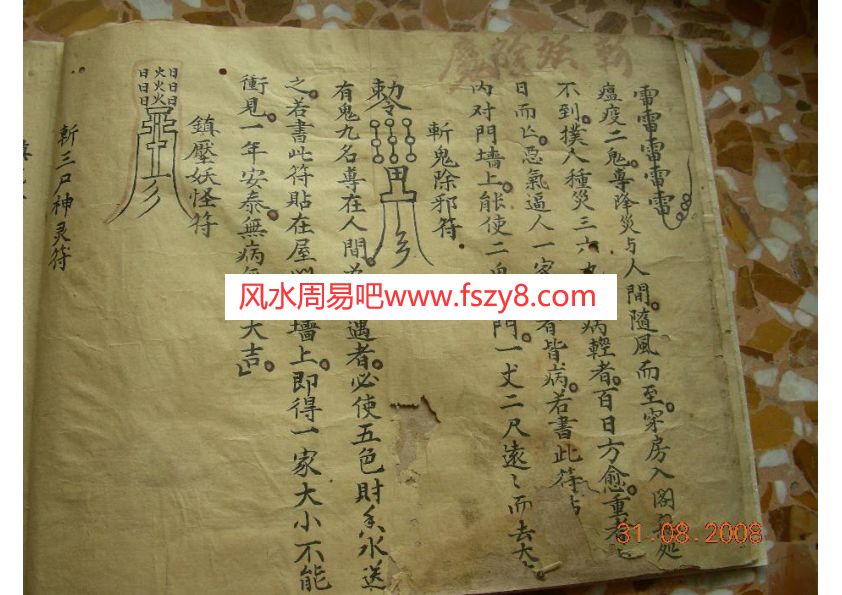 斬妖除魔
雷雷雷雷雷
瘟疫二鬼尊降災与人間。隨風而至。穿房入閣
不到。撲八種災三六病輕者。百日方愈。重者
日而亡。惡氣逼人一家者皆病。若書此符
内对門墻上。能使二鬼門一丈二尺遠々而去大
斬鬼除邪符
敕令
有鬼九名尊在人間。遇者。必使五色財香水送
之。若書此符貼在屋墻上。即得一家大小不能
衝見。一年安泰無病大吉。
鎮壓妖怪符
日日日火火火日日日
斬三尸神灵符
风水周易吧www.fszy8.com
31.08.2008